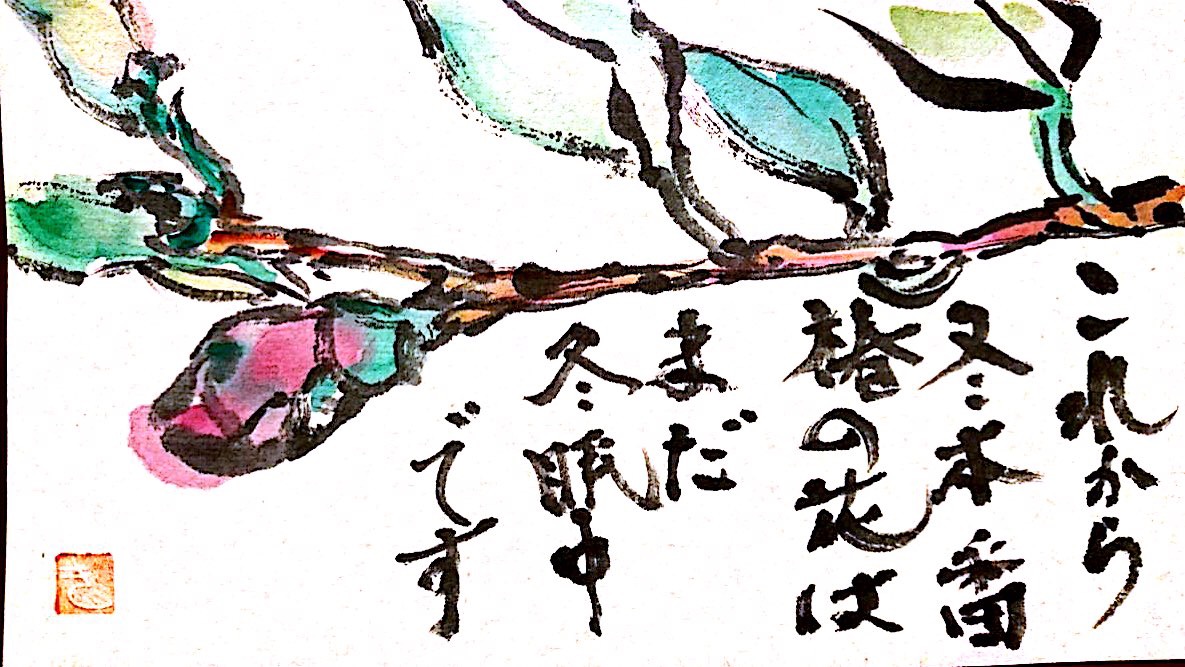 これから
冬本番
椿の花は
まだ
冬眠中
です